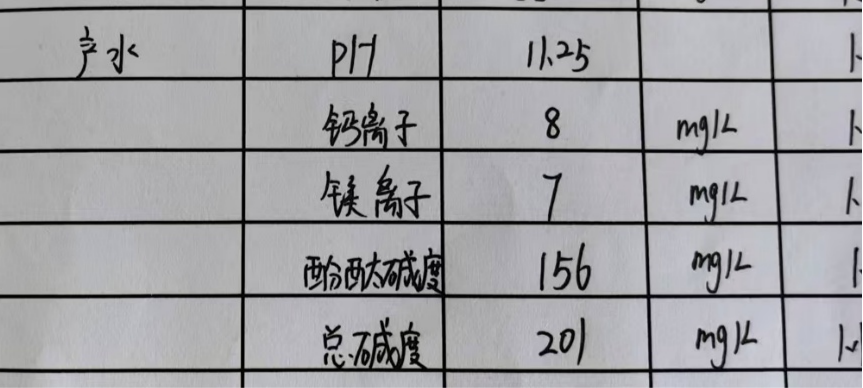 产水 PH 11.25
钙离子 8 mg/L
镁离子 7 mg/L
酚酞碱度 156 mg/L
总碱度 201 mg/L